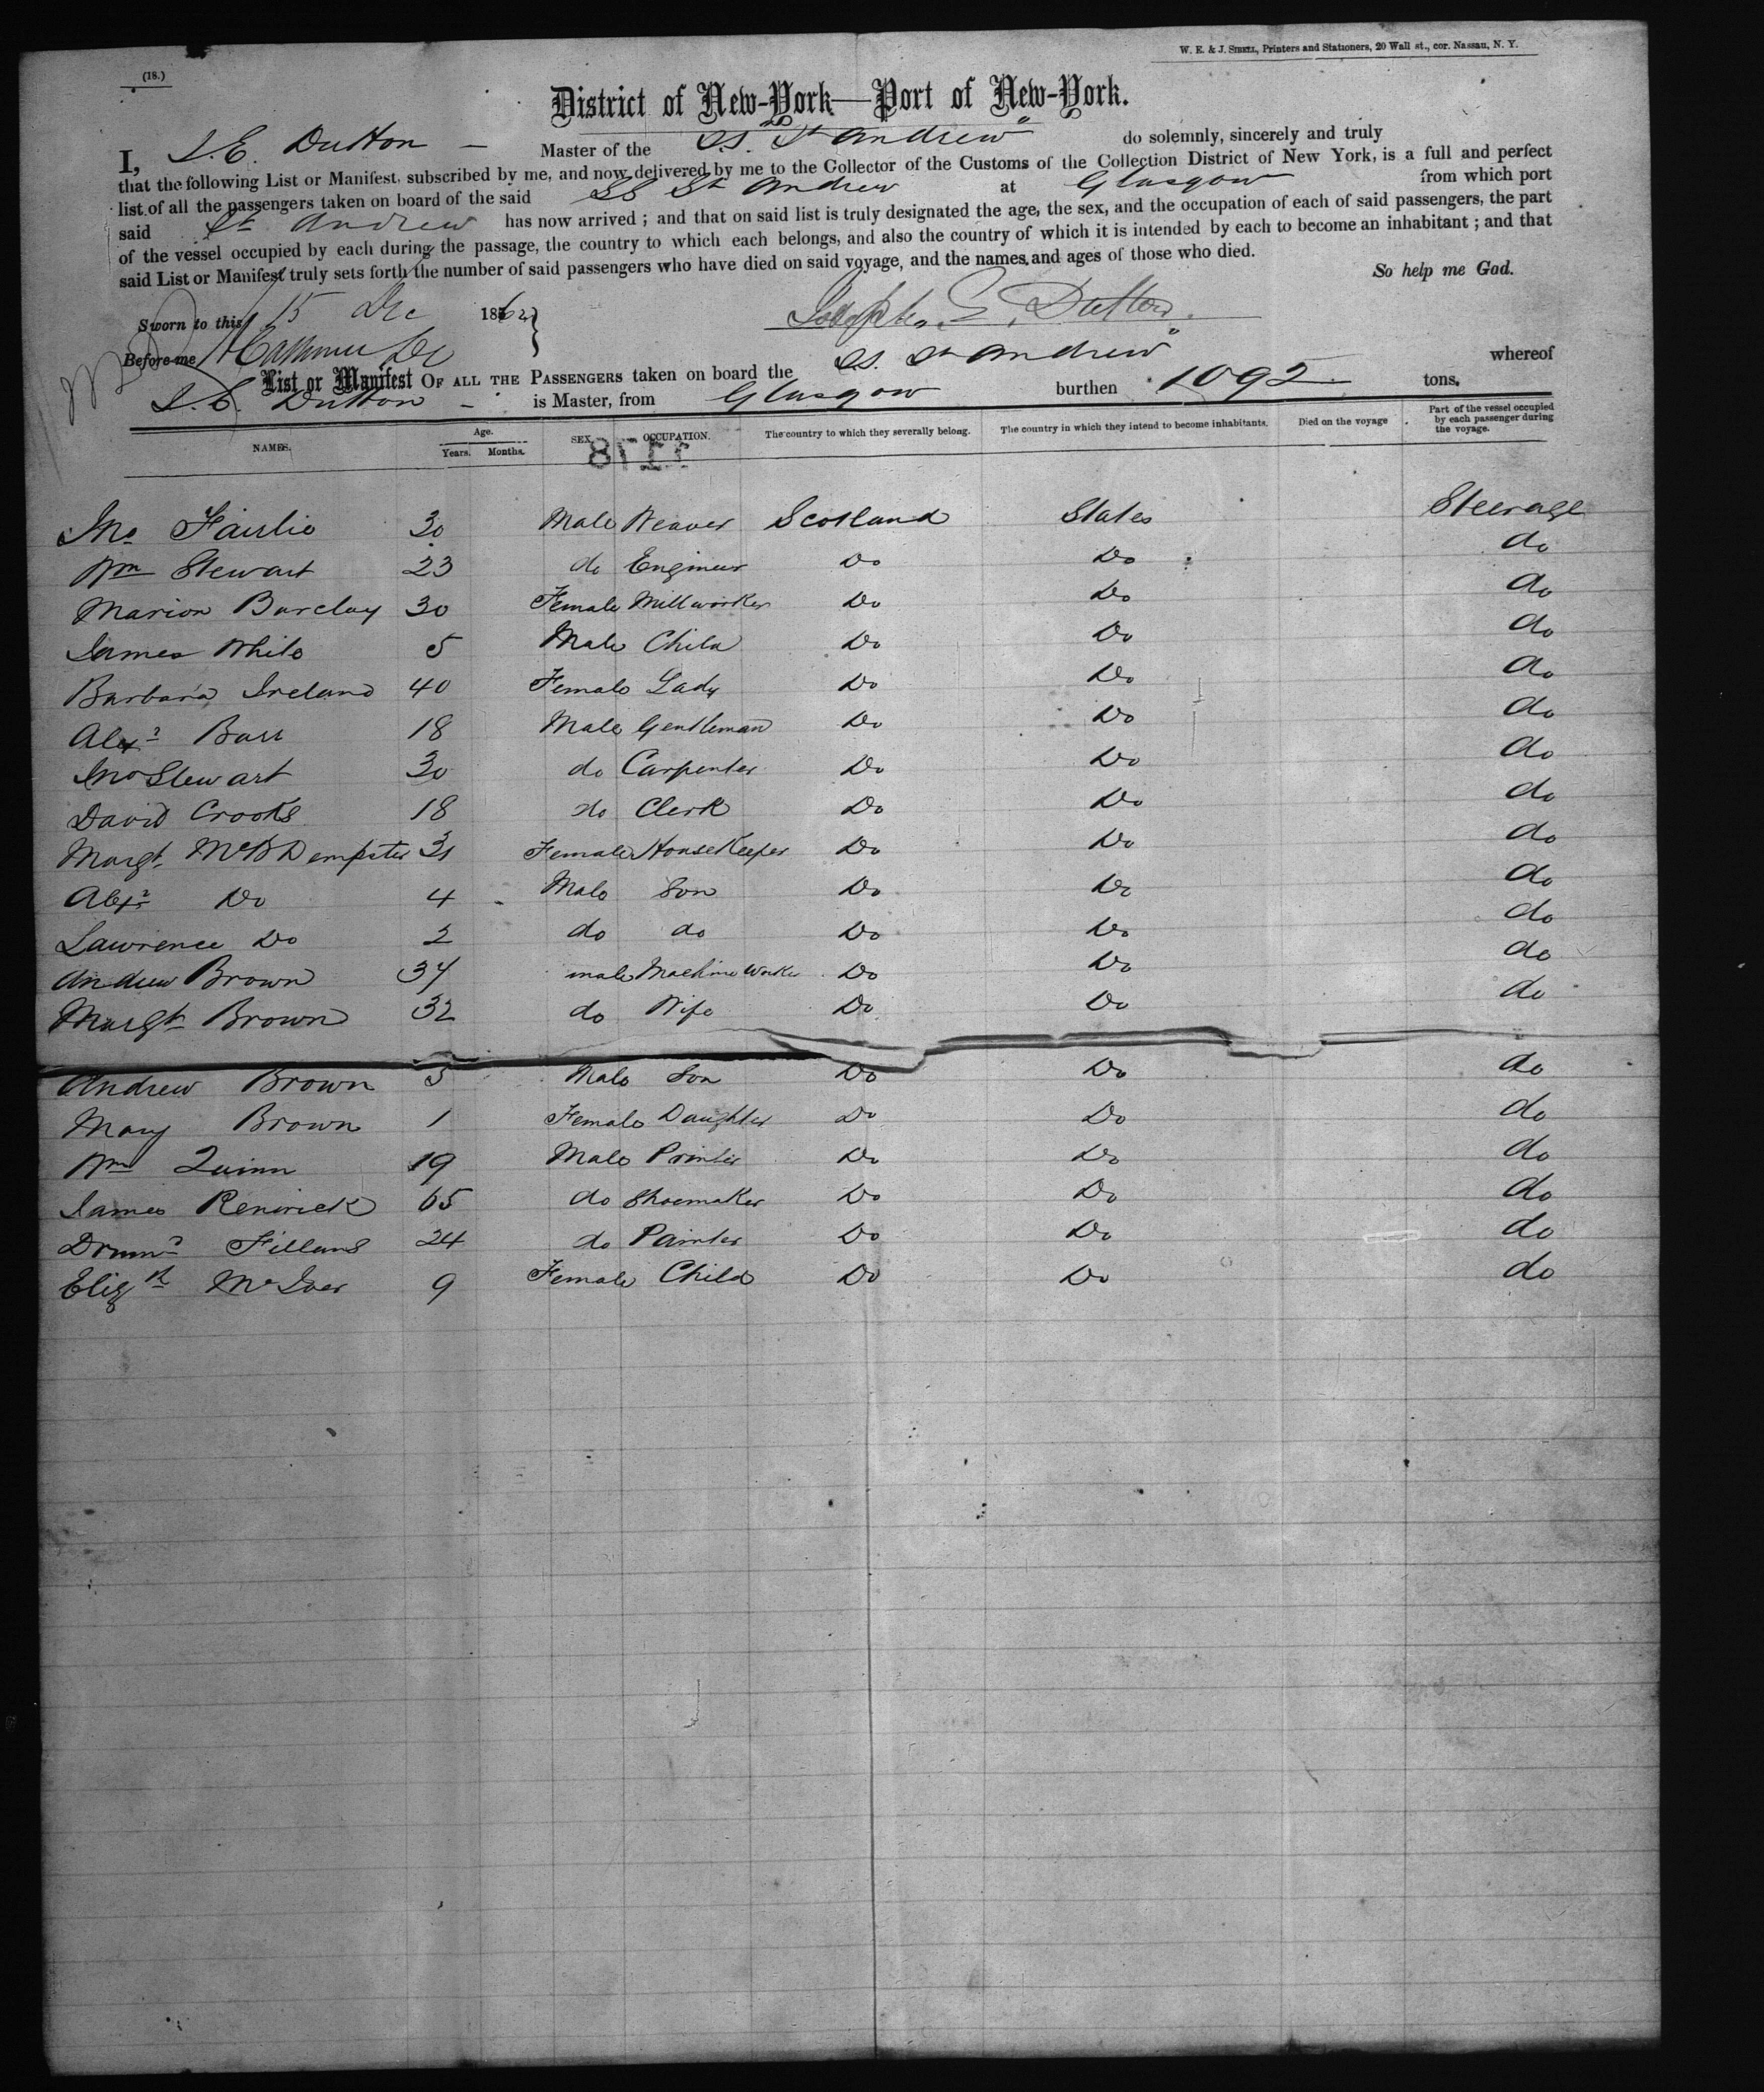 W. E. & J. SIBELL, Printers and Stationers, 20 Wall st., cor. Nassau, N. Y.
(18.)
District of New-York—Port of New-York.
I, J. E. Dutton — Master of the SS. "St Andrew" do solemnly, sincerely and truly
that the following List or Manifest, subscribed by me, and now delivered by me to the Collector of the Customs of the Collection District of New York, is a full and perfect
list of all the passengers taken on board of the said SS St Andrew at Glasgow from which port
said St Andrew has now arrived ; and that on said list is truly designated the age, the sex, and the occupation of each of said passengers, the part
of the vessel occupied by each during the passage, the country to which each belongs, and also the country of which it is intended by each to become an inhabitant ; and that
said List or Manifest truly sets forth the number of said passengers who have died on said voyage, and the names and ages of those who died.
So help me God.
Sworn to this 15 Dec 1862
Joseph E. Dutton.
Before me
List or Manifest OF ALL THE PASSENGERS taken on board the SS. St Andrew" whereof
J. E. Dutton — is Master, from Glasgow burthen 1092 tons.
NAMES. Age. Years. Months. SEX. OCCUPATION. The country to which they severally belong. The country in which they intend to become inhabitants. Died on the voyage Part of the vessel occupied by each passenger during the voyage.
Jno Fairlie 30 Male Weaver Scotland States Steerage
Wm Stewart 23 do Engineer Do Do do
Marion Barclay 30 Female Millworker Do Do do
James White 5 Male Child Do Do do
Barbara Ireland 40 Female Lady Do Do do
Alexr Barr 18 Male Gentleman Do Do do
Jno Stewart 30 do Carpenter Do Do do
David Crooks 18 do Clerk Do Do do
Margt McB Dempster 31 Female HouseKeeper Do Do do
Alexr Do 4 Male Son Do Do do
Lawrence Do 2 do do Do Do do
Andrew Brown 34 male Machine Worker Do Do do
Margt Brown 32 do Wife Do Do do
Andrew Brown 5 Male Son Do Do do
Mary Brown 1 Female Daughter Do Do do
Wm Quinn 19 Male Printer Do Do do
James Renwick 65 do Shoemaker Do Do do
Drumd Fillans 24 do Painter Do Do do
Elizth McIver 9 Female Child Do Do do